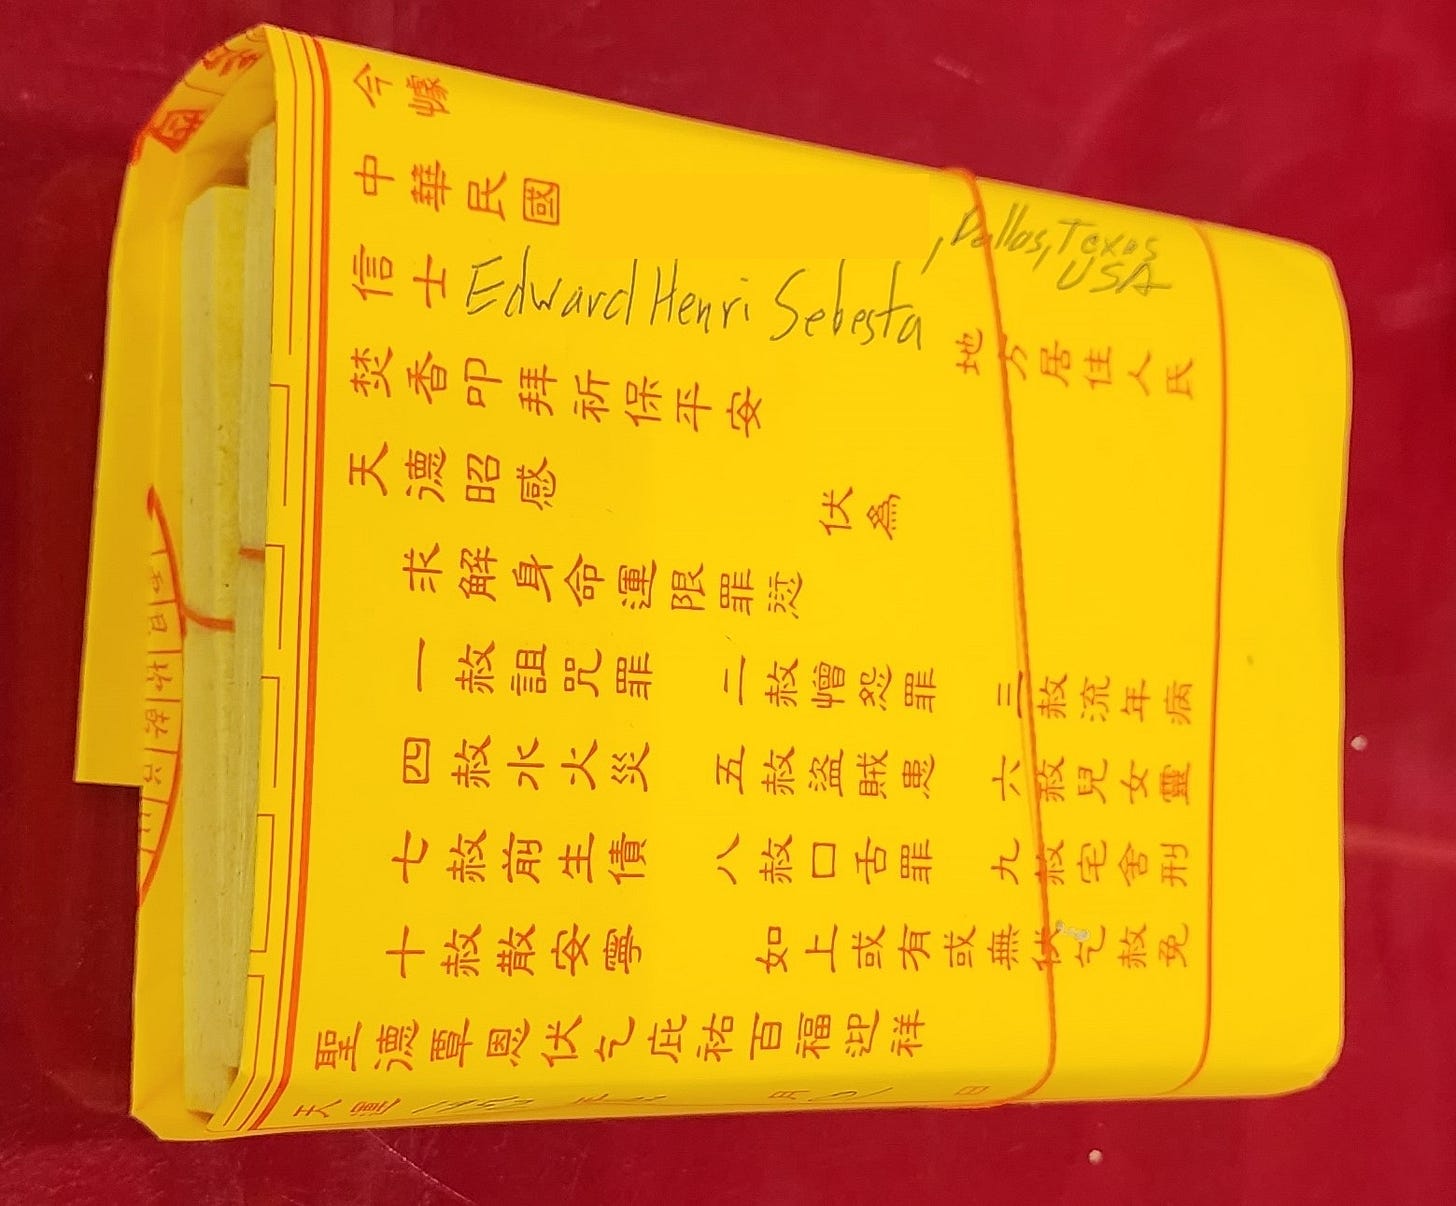 今據
中華民國
, Dallas, Texas
USA
地方居住人民
信士 Edward Henri Sebesta
焚香叩拜祈保平安
天德昭感 伏為
求解身命運限罪愆
一赦詛咒罪 二赦憎怨罪 三赦流年病
四赦水火災 五赦盜賊患 六赦兒女靈
七赦前生債 八赦口舌罪 九赦宅舍刑
十赦散安寧 如上或有或無伏乞赦免
聖德覃恩伏乞庇祐百福迎祥
天運 月 日